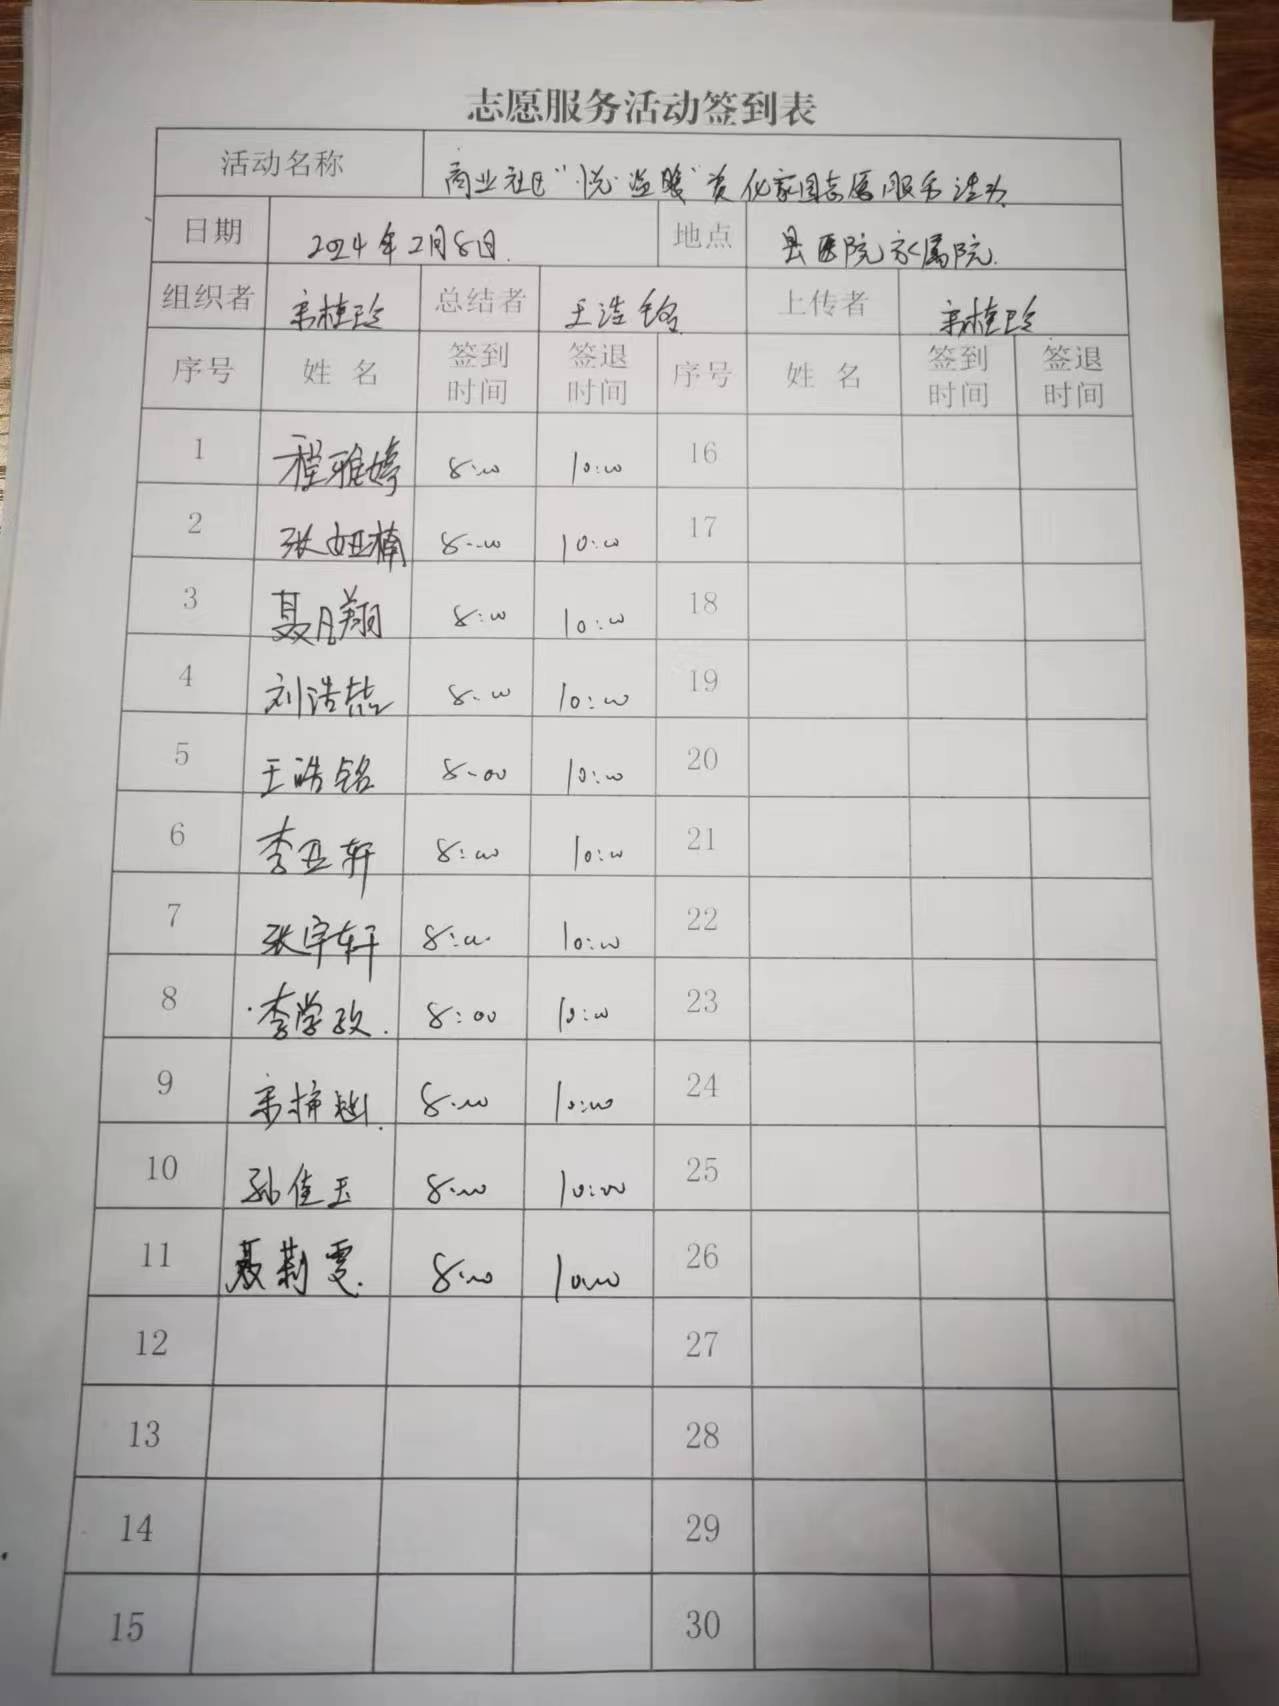 志愿服务活动签到表
活动名称 商业社区"悦·益暖"美化家园志愿服务活动
日期 2024年2月8日. 地点 县医院家属院.
组织者 宋桂玲 总结者 王浩铭 上传者 宋桂玲
序号 姓名 签到时间 签退时间 序号 姓名 签到时间 签退时间
1 程雅婷 8:00 10:00 16
2 张妞楠 8:00 10:00 17
3 聂凡翔 8:00 10:00 18
4 刘浩喆 8:00 10:00 19
5 王浩铭 8:00 10:00 20
6 李亚轩 8:00 10:00 21
7 张宇轩 8:00 10:00 22
8 李学孜. 8:00 10:00 23
9 宋 8:00 10:00 24
10 孙佳玉 8:00 10:00 25
11 聂莉雯. 8:00 10:00 26
12 27
13 28
14 29
15 30